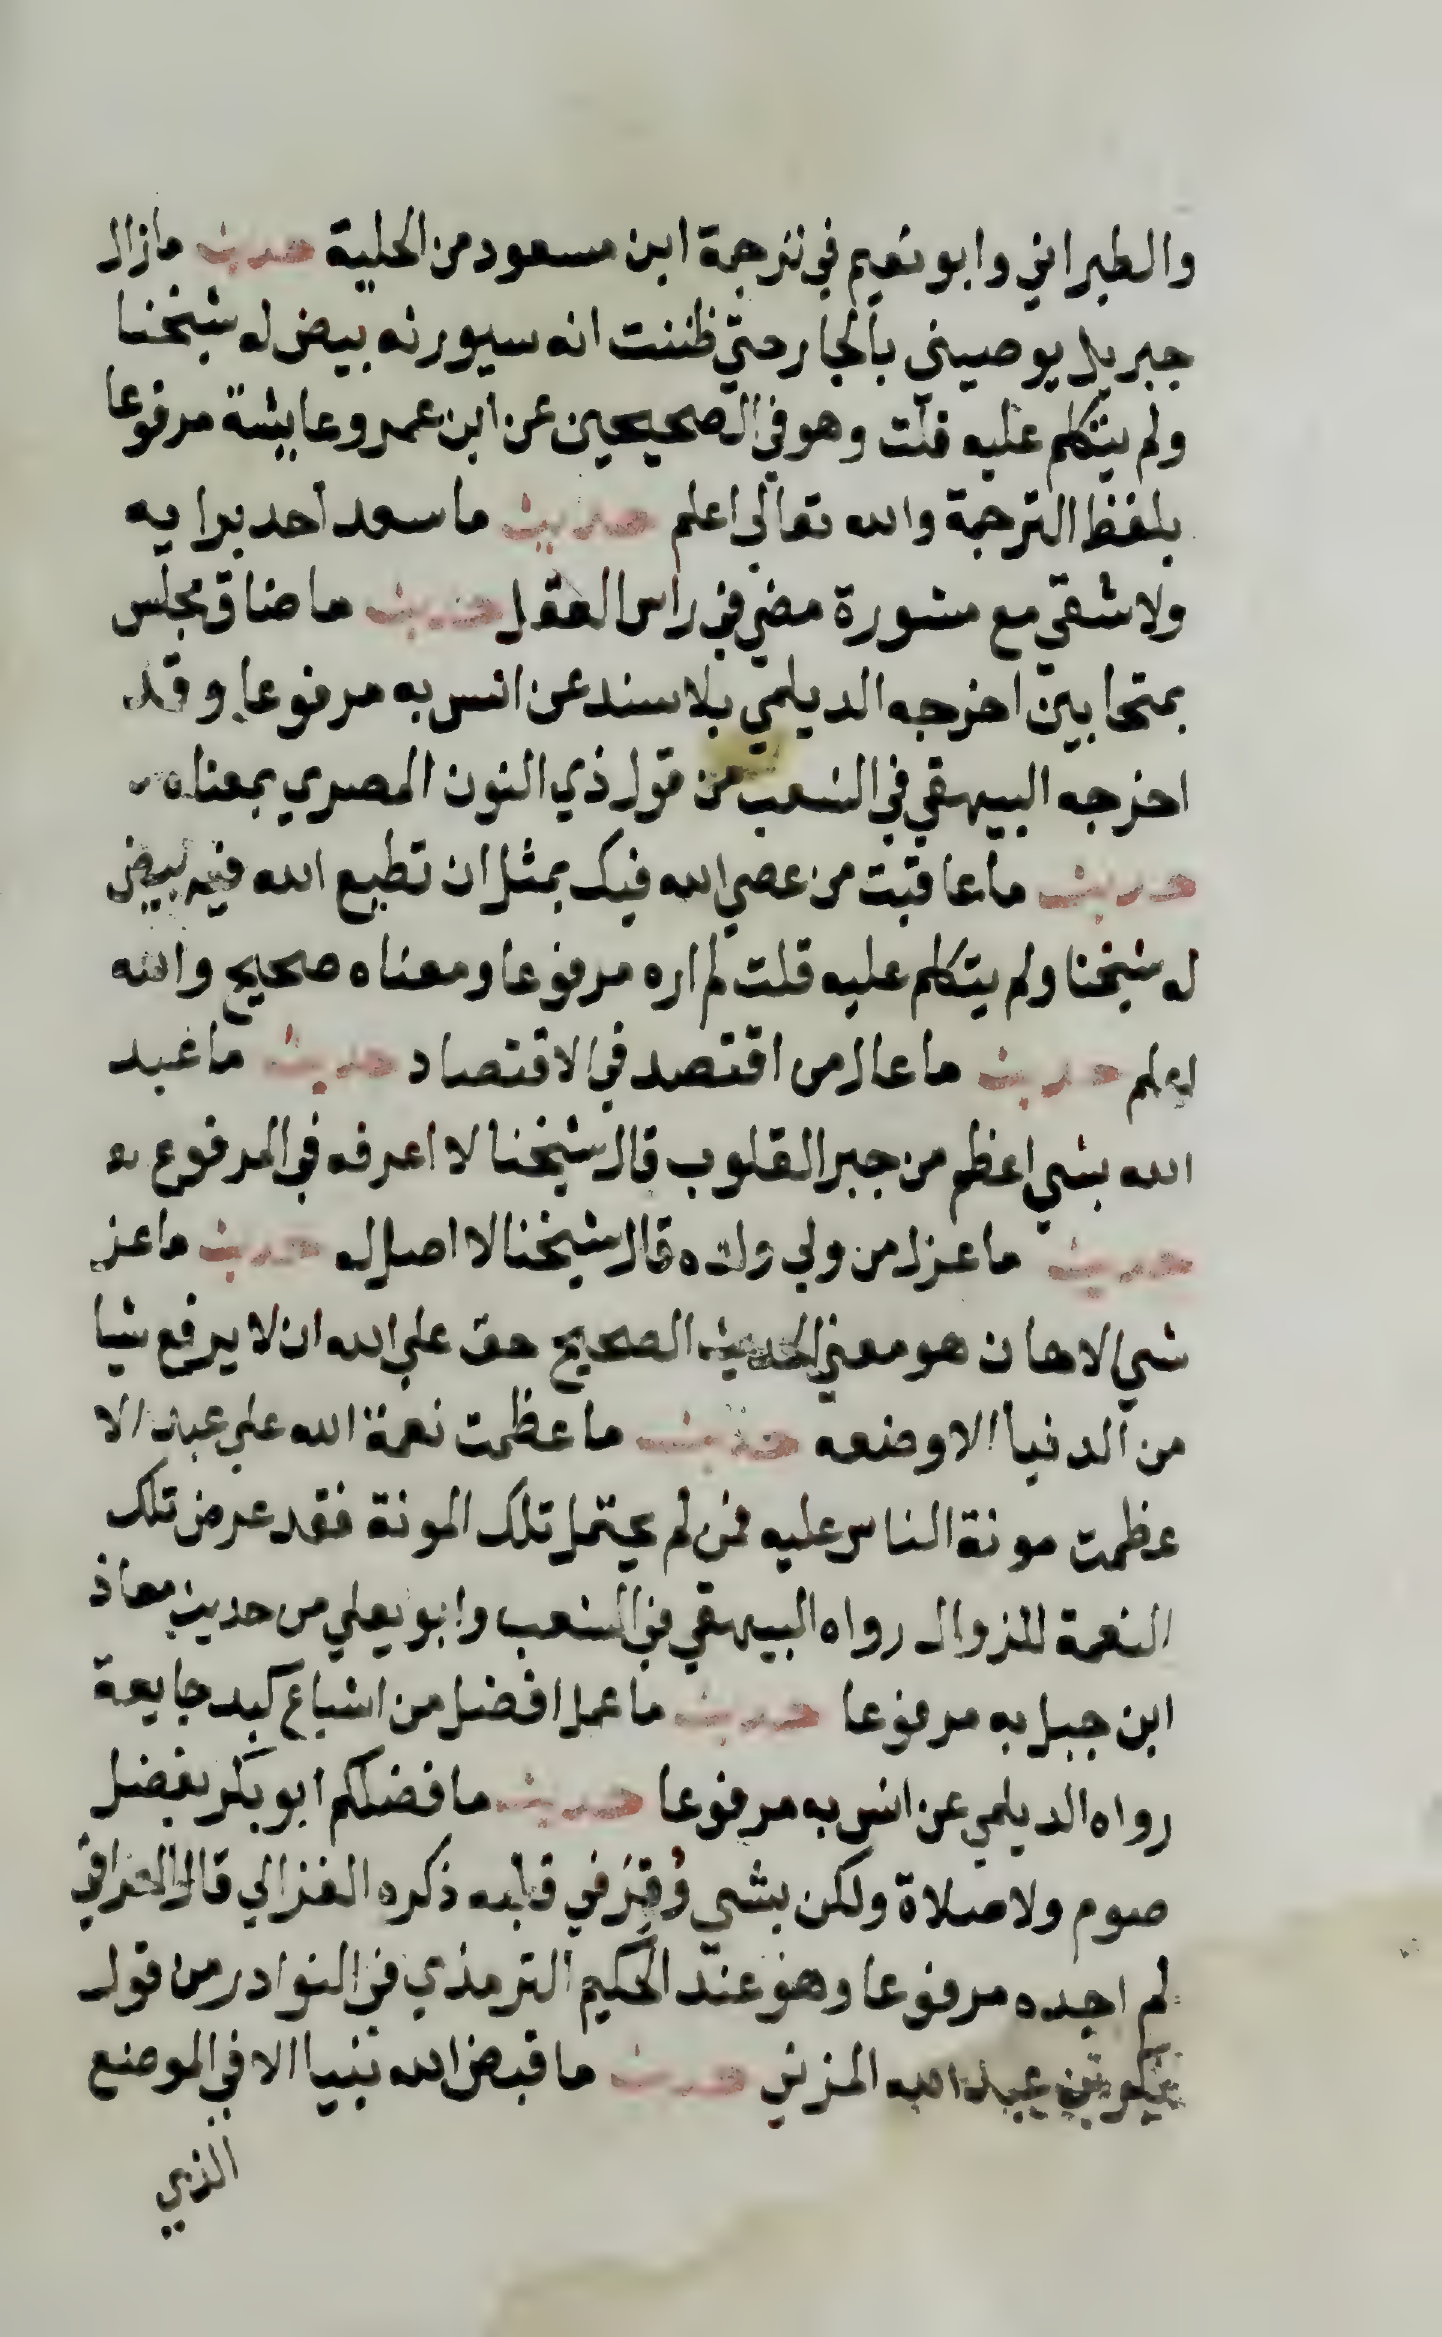 والطبراني وابو نعيم في ترجمة ابن مسعود من الحلية حديث مازال
جبريل يوصيني بالجار حتي ظننت انه سيورثه بيض له شيخنا
ولم يتكلم عليه قلت وهو في الصحيحين عن ابن عمر وعايشة مرفوعا
بلفظ الترجمة والله تعالي اعلم حديث ما سعد احد برايه
ولا شقي مع مشورة مضي في راس العقل حديث ما ضاق مجلس
بمتحابين اخرجه الديلمي بلا سند عن انس به مرفوعا وقد
اخرجه البيهقي في الشعب من قول ذي النون المصري بمعناه
حديث ما عاقبت من عصي الله فيك بمثل ان تطيع الله فيه بيض
له شيخنا ولم يتكلم عليه قلت لم اره مرفوعا ومعناه صحيح والله
اعلم حديث ما عال من اقتصد في الاقتصاد حديث ما عبد
الله بشي اعظم من جبر القلوب قال شيخنا لا اعرفه في المرفوع
حديث ما عزل من ولي ولده قال شيخنا لا اصل له حديث ما عز
شي الا هان هو معني الحديث الصحيح حق علي الله ان لا يرفع شيا
من الدنيا الا وضعه حديث ما عظمت نعمة الله علي عبد الا
عظمت مونة الناس عليه فمن لم يحتمل تلك المونة فقد عرض تلك
النعمة للزوال رواه البيهقي في الشعب وابو يعلي من حديث معاذ
ابن جبل به مرفوعا حديث ما عمل افضل من اشباع كبد جايعة
رواه الديلمي عن انس به مرفوعا حديث ما فضلكم ابو بكر بفضل
صوم ولا صلاة ولكن بشي وُقِرَ في قلبه ذكره الغزالي قال العراقي
لم اجده مرفوعا وهو عند الحكيم الترمذي في النوادر من قول
بكر بن عبد الله المزني حديث ما قبض الله نبيا الا في الموضع
الذي